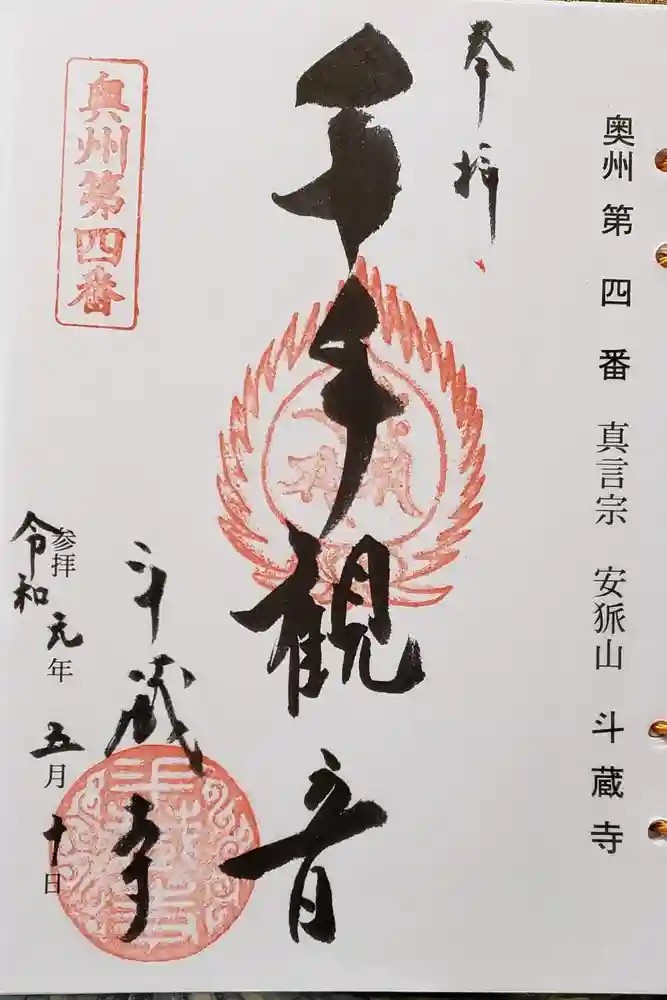 奥州第四番 真言宗 安狐山 斗蔵寺
奉拝
千手観音
斗蔵寺
奥州第四番
参拝
令和元年 五月十日